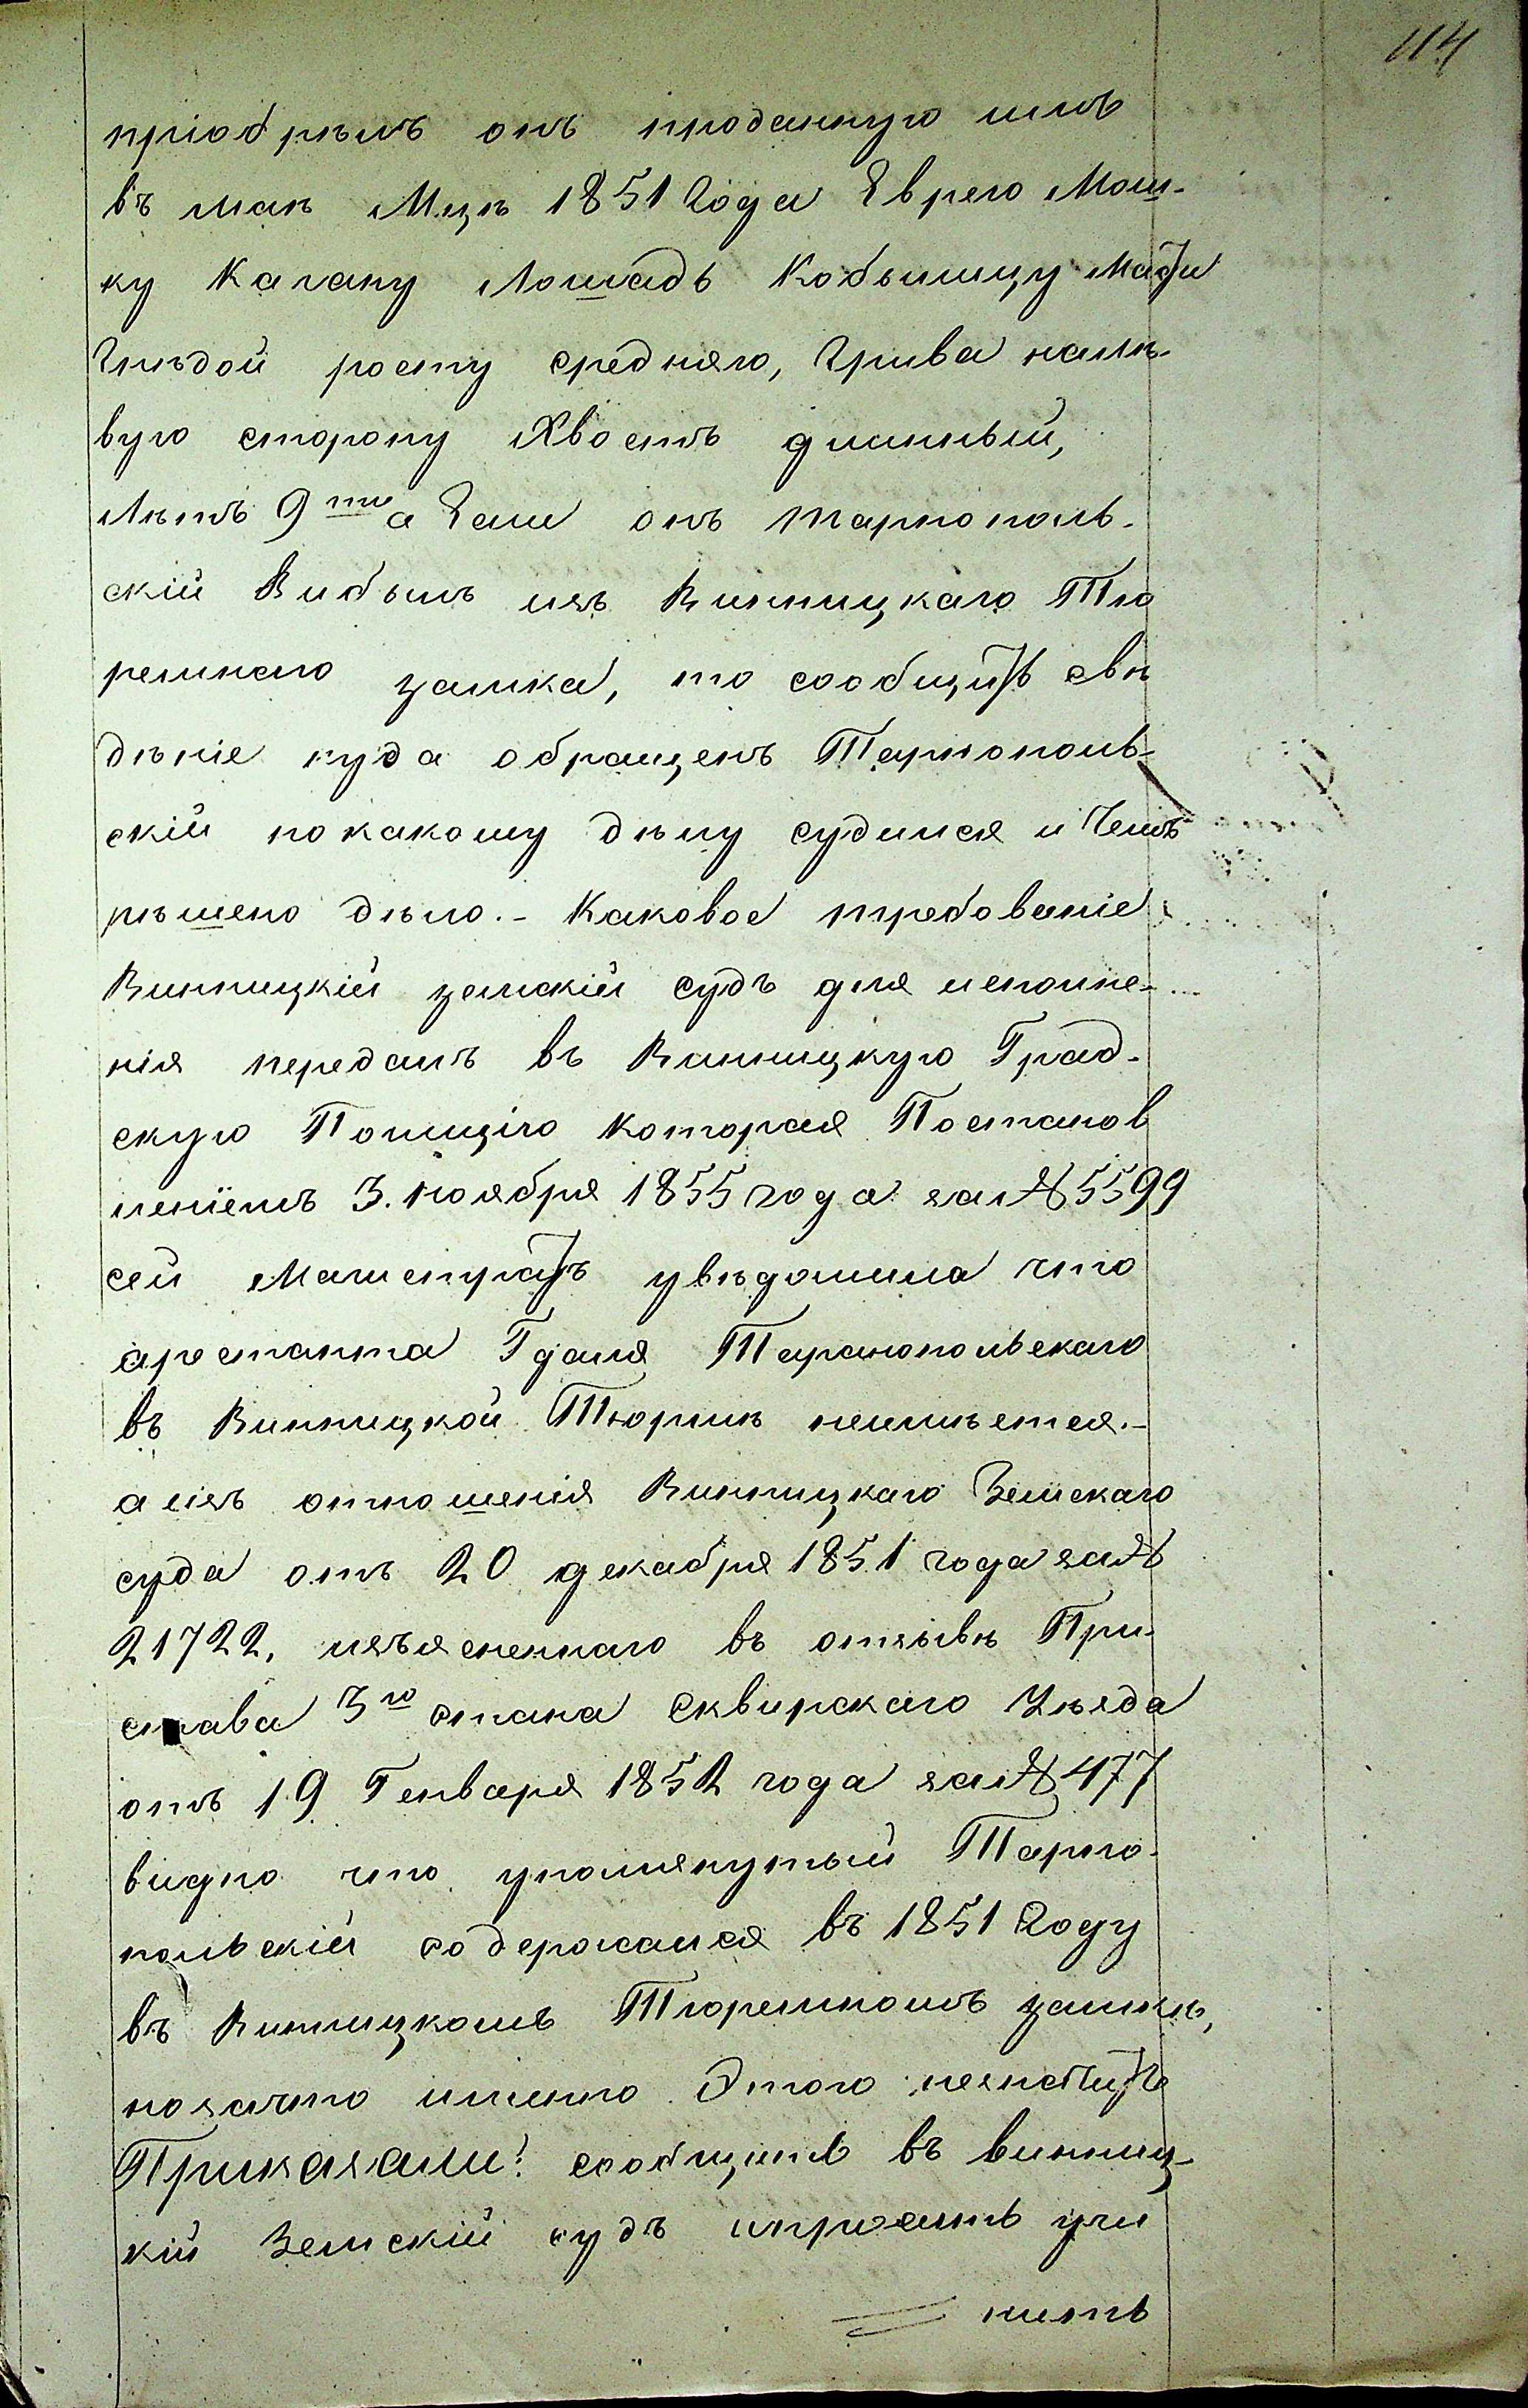 114
пріобрѣлъ онъ проданную имъ
въ маѣ М-цѣ 1851 Года Еврею Мош-
ку Кагану Лошадь Кобылицу масти
Гнѣдой росту средняго, Грива налѣ-
вую сторону Хвостъ длинный,
Лѣтъ 9ти а Ежели онъ тарнополь-
скій Выбылъ изъ Винницкаго Тю
ремнаго замка, то сообщитъ свѣ
дѣніе куда обращенъ Тарнополь-
скій покакому дѣлу судился и Чемъ
рѣшено дѣло.- Каковое требованіе
Винницкій земскій судъ для исполне-
нія передалъ въ Винницкую Град-
скую Полицію которая Постанов
леніемъ 3. ноября 1855 года за № 5599
сей Магистратъ увѣдомила что
арестанта Гдаля Таранопольскаго
въ Винницкой Тюрмѣ неимѣется.-
аизъ отношенія Винницкаго Земскаго
суда отъ 20 декабря 1851 года за №
21722, изъясненнаго въ отзывѣ При-
става 3го стана Сквирскаго Уѣзда
отъ 19 Генваря 1852 года за № 477
видно что упомянутый Тарно-
польскій содержался въ 1851 Году
въ Винницкомъ Тюремномъ замкѣ,
позачто именно Этого незначитъ
Приказали: сообщить въ винниц-
кій Земскій судъ ипросить учи
нить